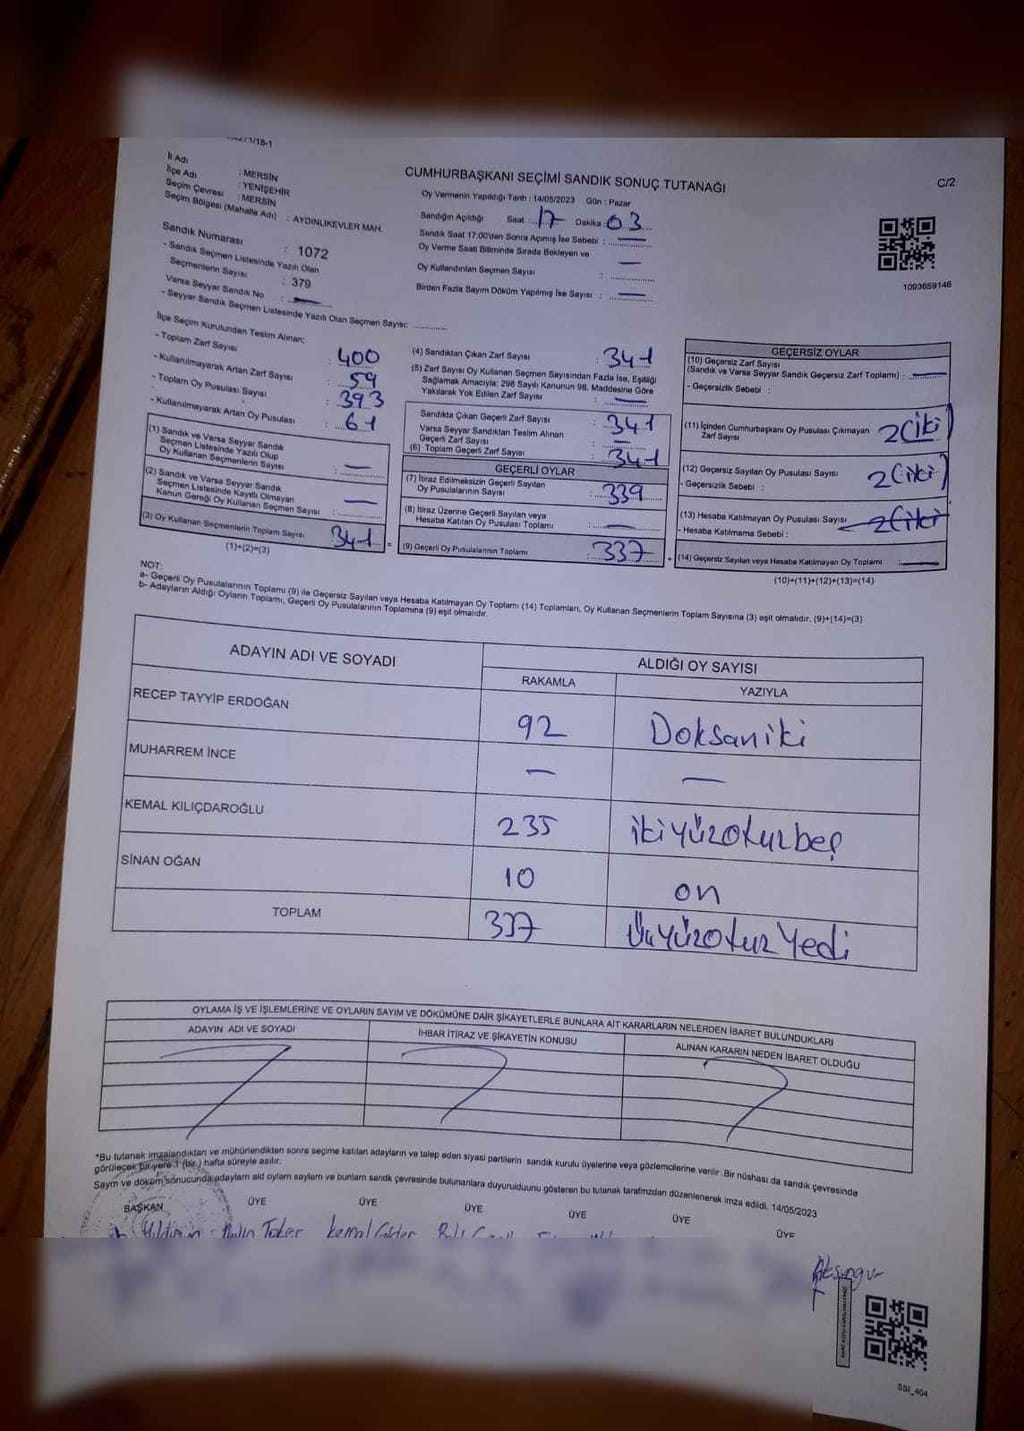 CUMHURBAŞKANI SEÇİMİ SANDIK SONUÇ TUTANAĞI
C/2
İl Adı : MERSİN
İlçe Adı : YENİŞEHİR
Seçim Çevresi : MERSİN
Seçim Bölgesi (Mahalle Adı) : AYDINLIKEVLER MAH.
Sandık Numarası : 1072
- Sandık Seçmen Listesinde Yazılı Olan
Seçmenlerin Sayısı : 379
Varsa Seyyar Sandık No : —
- Seyyar Sandık Seçmen Listesinde Yazılı Olan Seçmen Sayısı: ..............
Oy Vermenin Yapıldığı Tarih : 14/05/2023 Gün : Pazar
Sandığın Açıldığı Saat : 17 Dakika : 03
Sandık Saat 17:00'den Sonra Açılmış İse Sebebi : —
Oy Verme Saati Bitiminde Sırada Bekleyen ve —
Oy Kullandırılan Seçmen Sayısı : ..............
Birden Fazla Sayım Döküm Yapılmış İse Sayısı : —
1093659146
İlçe Seçim Kurulundan Teslim Alınan;
- Toplam Zarf Sayısı : 400
- Kullanılmayarak Artan Zarf Sayısı : 59
- Toplam Oy Pusulası Sayısı : 393
- Kullanılmayarak Artan Oy Pusulası : 61
(1) Sandık ve Varsa Seyyar Sandık
Seçmen Listesinde Yazılı Olup
Oy Kullanan Seçmenlerin Sayısı : —
(2) Sandık ve Varsa Seyyar Sandık
Seçmen Listesinde Kayıtlı Olmayan
Kanun Gereği Oy Kullanan Seçmen Sayısı : —
(3) Oy Kullanan Seçmenlerin Toplam Sayısı : 341
(1)+(2)=(3)
(4) Sandıktan Çıkan Zarf Sayısı : 341
(5) Zarf Sayısı Oy Kullanan Seçmen Sayısından Fazla İse, Eşitliği
Sağlamak Amacıyla; 298 Sayılı Kanunun 98. Maddesine Göre
Yakılarak Yok Edilen Zarf Sayısı : —
Sandıkta Çıkan Geçerli Zarf Sayısı : 341
Varsa Seyyar Sandıktan Teslim Alınan
Geçerli Zarf Sayısı : —
(6) Toplam Geçerli Zarf Sayısı : 341
GEÇERLİ OYLAR
(7) İtiraz Edilmeksizin Geçerli Sayılan
Oy Pusulalarının Sayısı : 339
(8) İtiraz Üzerine Geçerli Sayılan veya
Hesaba Katılan Oy Pusulası Toplamı : —
(9) Geçerli Oy Pusulalarının Toplamı : 337
GEÇERSİZ OYLAR
(10) Geçersiz Zarf Sayısı
(Sandık ve Varsa Seyyar Sandık Geçersiz Zarf Toplamı) : —
- Geçersizlik Sebebi :
(11) İçinden Cumhurbaşkanı Oy Pusulası Çıkmayan
Zarf Sayısı 2 (iki)
(12) Geçersiz Sayılan Oy Pusulası Sayısı 2 (iki)
- Geçersizlik Sebebi :
(13) Hesaba Katılmayan Oy Pusulası Sayısı 2 (iki)
- Hesaba Katılmama Sebebi :
(14) Geçersiz Sayılan veya Hesaba Katılmayan Oy Toplamı : —
(10)+(11)+(12)+(13)=(14)
NOT:
a- Geçerli Oy Pusulalarının Toplamı (9) ile Geçersiz Sayılan veya Hesaba Katılmayan Oy Toplamı (14) Toplamları, Oy Kullanan Seçmenlerin Toplam Sayısına (3) eşit olmalıdır. (9)+(14)=(3)
b- Adayların Aldığı Oyların Toplamı, Geçerli Oy Pusulalarının Toplamına (9) eşit olmalıdır.
ADAYIN ADI VE SOYADI ALDIĞI OY SAYISI
RAKAMLA YAZIYLA
RECEP TAYYİP ERDOĞAN 92 Doksaniki
MUHARREM İNCE — —
KEMAL KILIÇDAROĞLU 235 ikiyüzotuzbeş
SİNAN OĞAN 10 on
TOPLAM 337 Üçyüzotuzyedi
OYLAMA İŞ VE İŞLEMLERİNE VE OYLARIN SAYIM VE DÖKÜMÜNE DAİR ŞİKAYETLERLE BUNLARA AİT KARARLARIN NELERDEN İBARET BULUNDUKLARI
ADAYIN ADI VE SOYADI İHBAR İTİRAZ VE ŞİKAYETİN KONUSU ALINAN KARARIN NEDEN İBARET OLDUĞU
*Bu tutanak imzalandıktan ve mühürlendikten sonra seçime katılan adayların ve talep eden siyasi partilerin sandık kurulu üyelerine veya gözlemcilerine verilir. Bir nüshası da sandık çevresinde
görülecek bir yere 1 (bir) hafta süreyle asılır.
Sayım ve döküm sonucunda adayların aldı oyların sayılarını ve bunların sandık çevresinde bulunanlara duyurulduğunu gösteren bu tutanak tarafımızdan düzenlenerek imza edildi. 14/05/2023
BAŞKAN ÜYE ÜYE ÜYE ÜYE ÜYE ÜYE
SSI_404